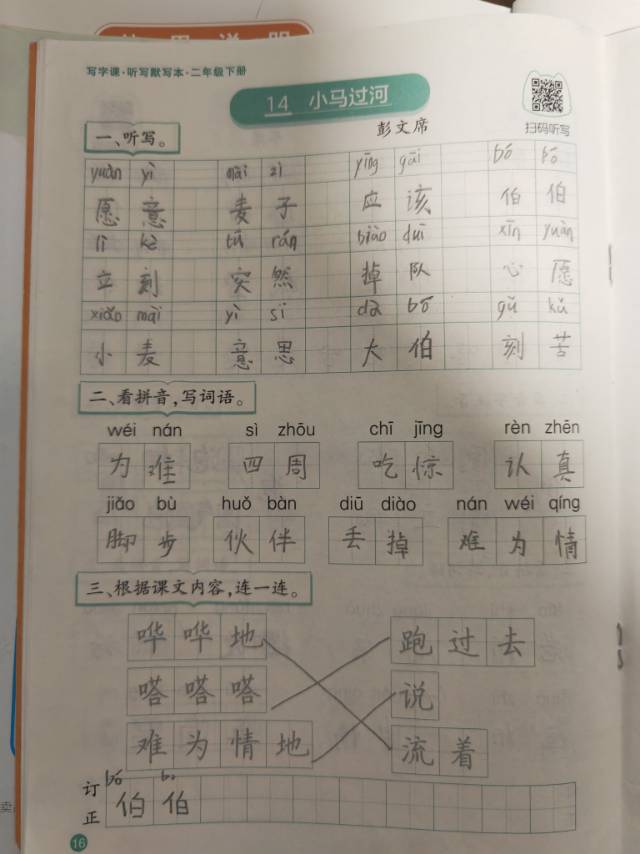 写字课·听写默写本·二年级下册
14 小马过河
彭文席
扫码听写
一、听写。
yuàn yì mài zi yīng gāi bó bo
愿意 麦子 应该 伯伯
lì kè tū rán diào duì xīn yuàn
立刻 突然 掉队 心愿
xiǎo mài yì si dà bó kè kǔ
小麦 意思 大伯 刻苦
二、看拼音,写词语。
wéi nán sì zhōu chī jīng rèn zhēn
为难 四周 吃惊 认真
jiǎo bù huǒ bàn diū diào nán wéi qíng
脚步 伙伴 丢掉 难为情
三、根据课文内容,连一连。
哗哗地 跑过去
嗒嗒嗒 说
难为情地 流着
bó bo
订正 伯伯
16